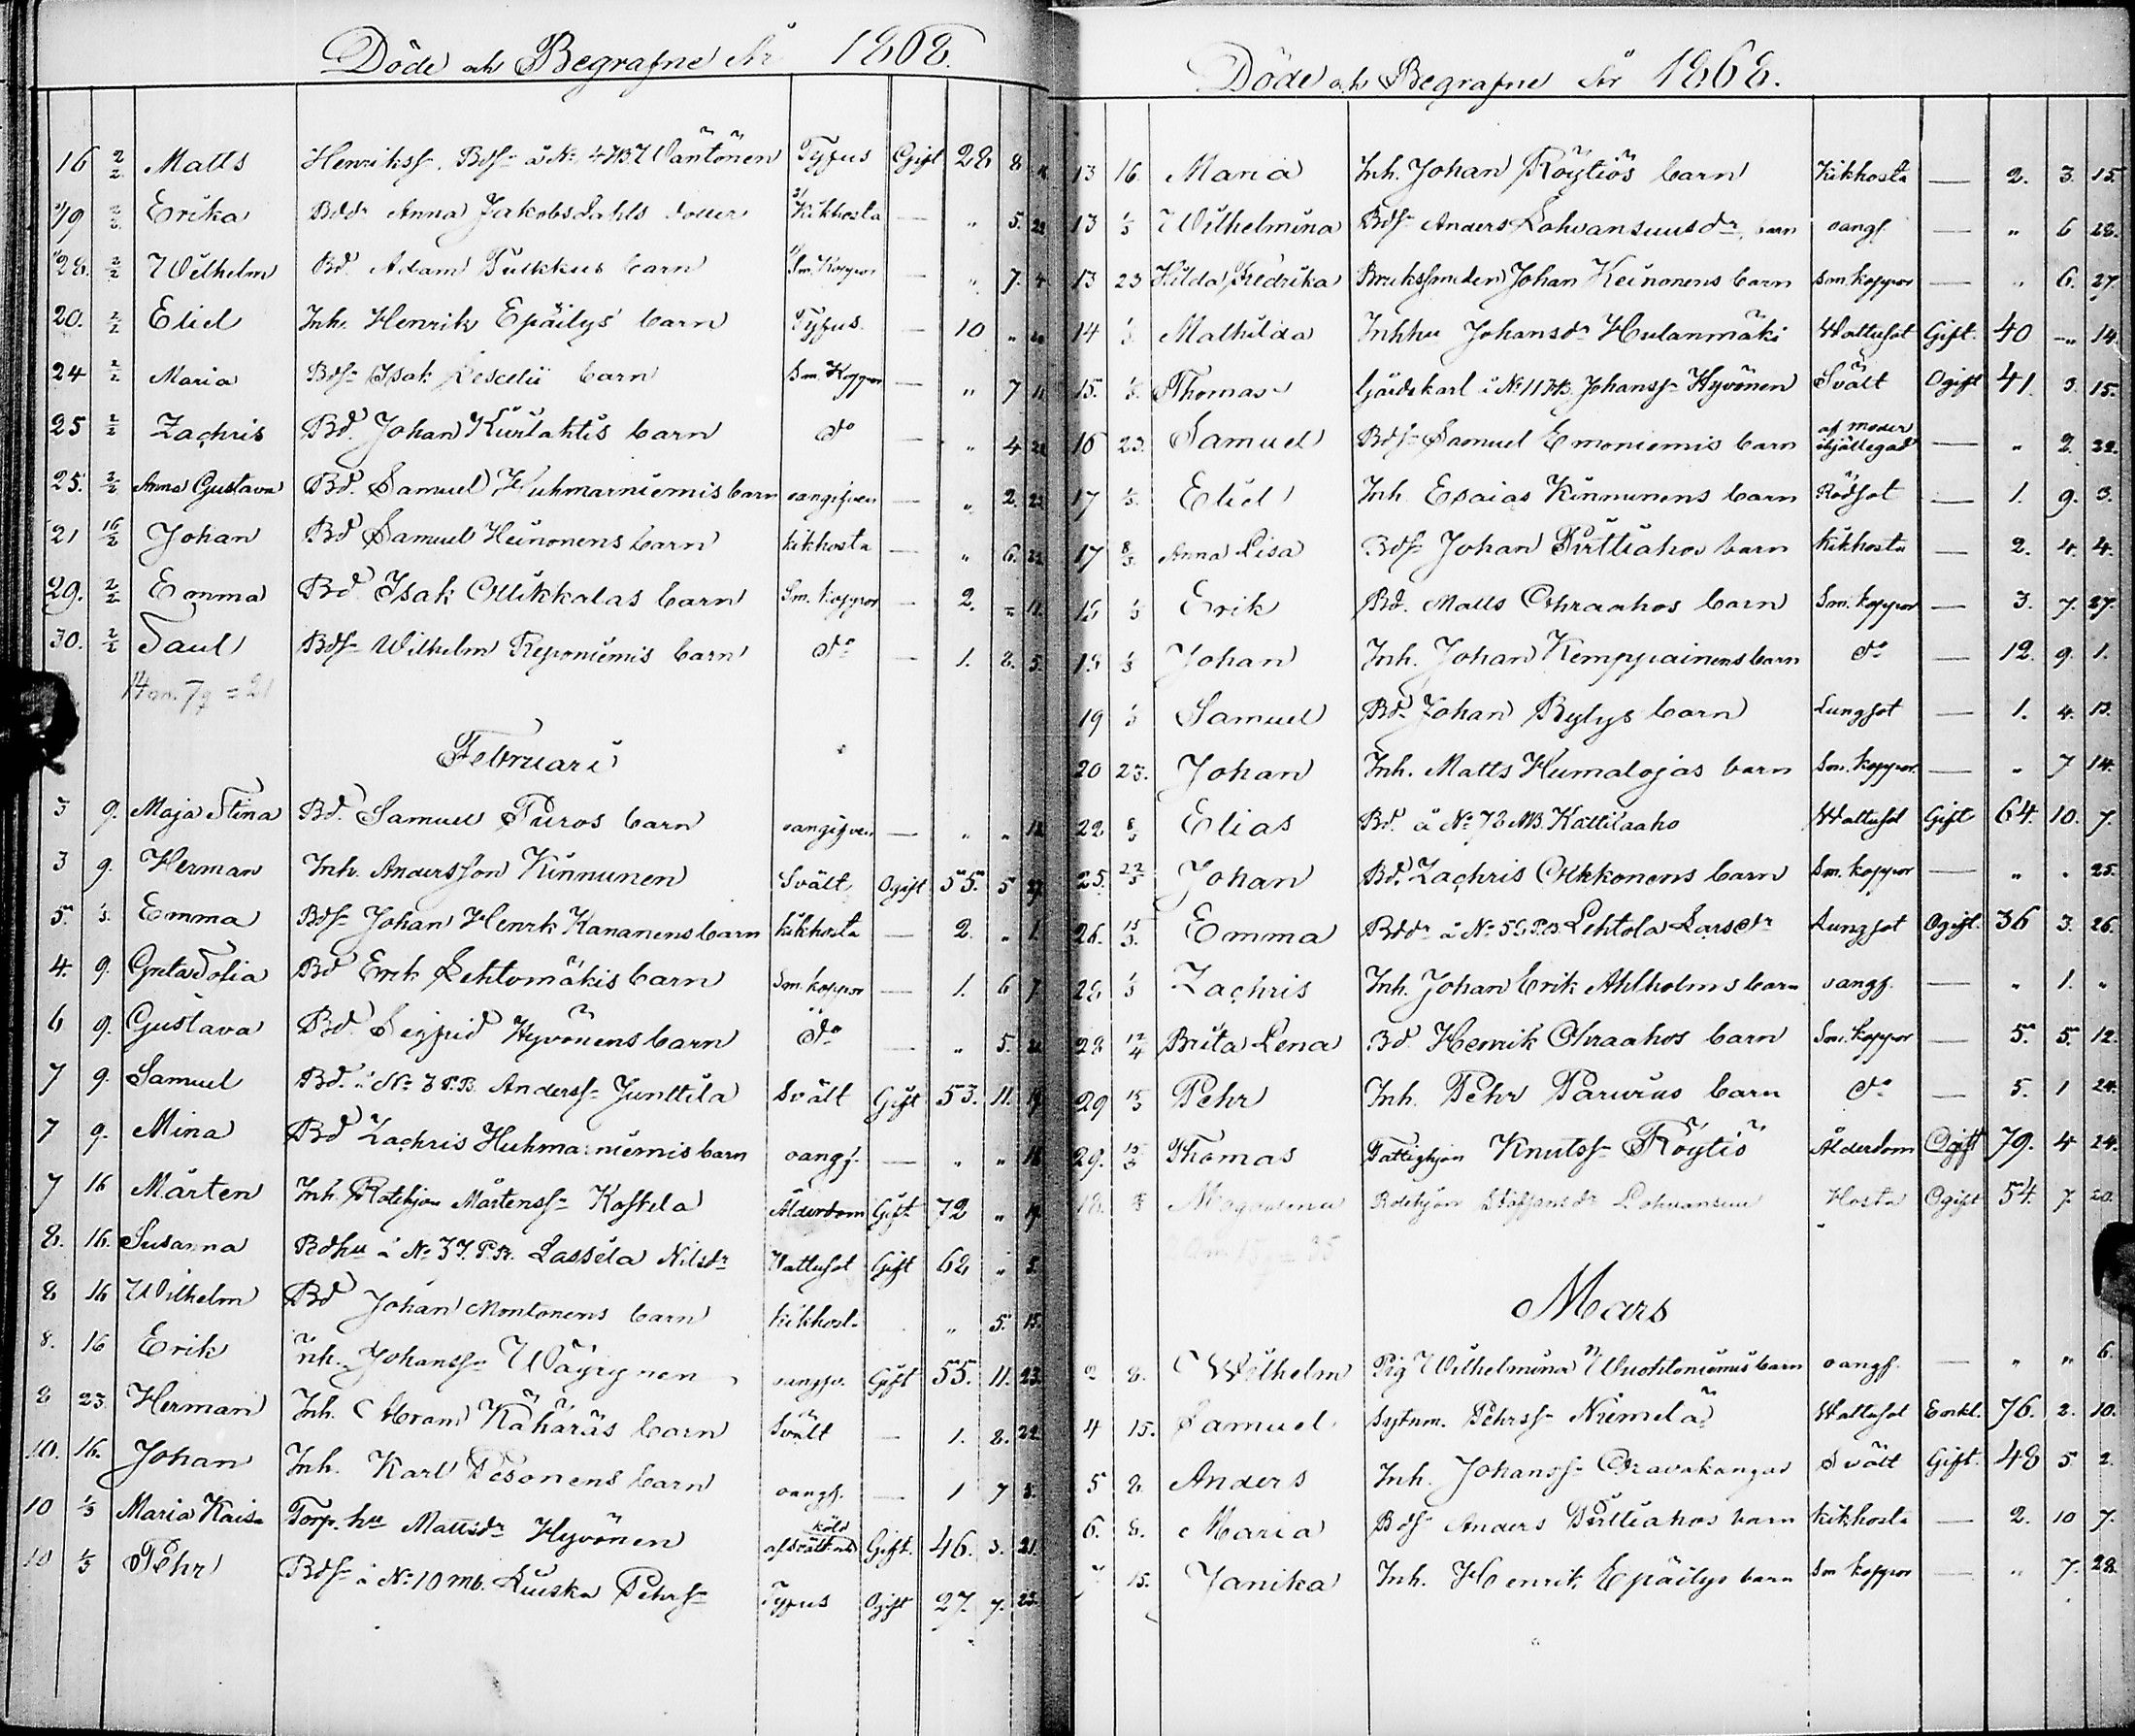 Döde och Begrafne År 1868.
16 2/2 Matts Henrikss. Bds. å No 47 B.7 Väntönen Typus Gift 28 8
19 2/2 Erika Bdd. Anna Jakobsdahls dotter Kikhosta — " 5. 22
28. 2/2 Wilhelm Bd. Adam Pulkkus barn Sm. Koppor — " 7. 4.
20. 2/2 Eliel Inh. Henrik Epäilys barn Typus. — 10 "
24 2/2 Maria Bds. Isak Lescelii barn Sm. Koppor — " 7 11.
25 2/2 Zachris Bd. Johan Kurlahtis barn do — " 4
25. 2/2 Anna Gustava Bd. Samuel Huhmarniemis barn oangifven — " 2. 23
21 16/2 Johan Bd Samuel Heinonens barn kikhosta — " 6. 22.
29. 2/2 Emma Bd. Isak Ollikkalas barn Sm. koppor — 2. " 11.
30. 2/2 Paul Bds. Wilhelm Reponiemis barn do — 1. 8. 5.
14 m. 7 q = 21
Februari
3 9. Maja Stina Bd. Samuel Puros barn oangifven — " " 12
3 9. Herman Inh. Andersson Kinnunen Svält Ogift 55. 5 27.
5. 1/3. Emma Bds. Johan Henrk Kananens barn kikhosta — 2. " 1.
4. 9. Greta Sofia Bd Erik Lehtomäkis barn Sm. koppor — 1. 6 7.
6 9. Gustava Bd. Sigfrid Hyvönens barn do — " 5.
7 9. Samuel Bd. å No 3 P.B. Anderss. Junttila Svält Gift 53. 11. 19
7 9. Mina Bd Zachris Huhmarniemis barn oangf. — " " 16
7 16 Mårten Inh. Rotehjon Mårtenss. Koskela Ålderdom Gift. 72 " 19.
8. 16. Susanna Bdhu å No 37. P.B. Lassila Nilsdr Wattusot Gift 62 " 5.
8 16 Wilhelm Bd Johan Montonens barn kikhost. " 5. 15.
8. 16 Erik Inh. Johanss. Väyrynen oangfv. Gift 55. 11. 23.
8 23. Herman Inh. Abram Kähäräs barn Svält — 1. 8. 22.
10. 16. Johan Inh. Karl Pesonens barn oangf. — 1 7 8.
10 1/3 Maria Kaisa Torp. hu Mattsdr Hyvönen af svält och köld Gift. 46. 3. 21.
10 1/3 Pehr Bds. å No 10 mb. Luiska Pehrs. Typus Ogift 27. 7. 23.
Döde och Begrafne År 1868.
13 16 Maria Inh. Johan Röytiös barn Kikhosta — 2. 3. 15.
13 1/3 Wilhelmina Bds. Anders Lohvansuusdr. barn oangf. — " 6 28.
13 23 Hilda Fredrika Bruksmeden Johan Keinonens barn Sm. koppor — " 6. 27.
14 1/3 Mathilda Inhhu Johansdr Hulanmäki Wattusot Gift. 40 " 14.
15. 1/3. Thomas Gårdskarl å No 11 Hb. Johanss. Hyvönen Svält Ogift 41. 3. 15.
16 23. Samuel Bds. Samuel Emoniemis barn af moder ihjällegad — " 2. 22.
17 1/3. Eliel Inh. Esaias Kinnunens barn Rödsot — 1. 9. 3.
17 8/3. Anna Lisa Bds. Johan Pirttiahos barn kikhosta — 2. 4. 4.
18 1/3 Erik Bd. Matts Ohraahos barn Sm. koppor — 3. 7. 27.
18 1/3 Johan Inh. Johan Kemppainens barn do — 12. 9. 1.
19 1/3 Samuel Bd. Johan Rylys barn Lungsot — 1. 4. 13.
20 23. Johan Inh. Matts Humalojas barn Sm. koppor. — " 7 14.
22 8/3 Elias Bd. å No 72 MB. Kattilaaho Wattusot Gift 64. 10. 7.
25. 22/3 Johan Bd. Zachris Okkonens barn Sm. koppor — " " 25.
26. 15/3. Emma Bddr. å No 56 P.B. Lehtola Larsdr Lungsot Ogift. 36 3. 26.
28 1/3 Zachris Inh. Johan Erik Ahlholms barn oangf. — " 1. "
28 12/4 Brita Lena Bd. Henrik Ohraahos barn Sm. koppor — 5. 5. 12.
29 15/3 Pehr Inh. Pehr Parvius barn do — 5. 1 24.
29. 15/3 Thomas Fattighjon Knutss. Röytiö Ålderdom Ogift 79. 4 24.
18. 8/3 Magdalena Rotehjon Staffansdr Lohvansuu Hosta Ogift 54. 7. 20.
Mars
2 8. Wilhelm Pig. Wilhelmina Vuohtoniemis barn oangf. — " " 6.
4 15. Samuel Sytnm. Pehrss. Niemelä Wattusot Enkl. 76. 2. 10.
5 8. Anders Inh. Johanss. Oravakangas Svält Gift. 48 5 2.
6. 8. Maria Bds. Anders Pirttiahos barn kikhosta — 2. 10 7.
7 15. Janika Inh. Henrik Epäilys barn Sm koppor — " 7. 28.